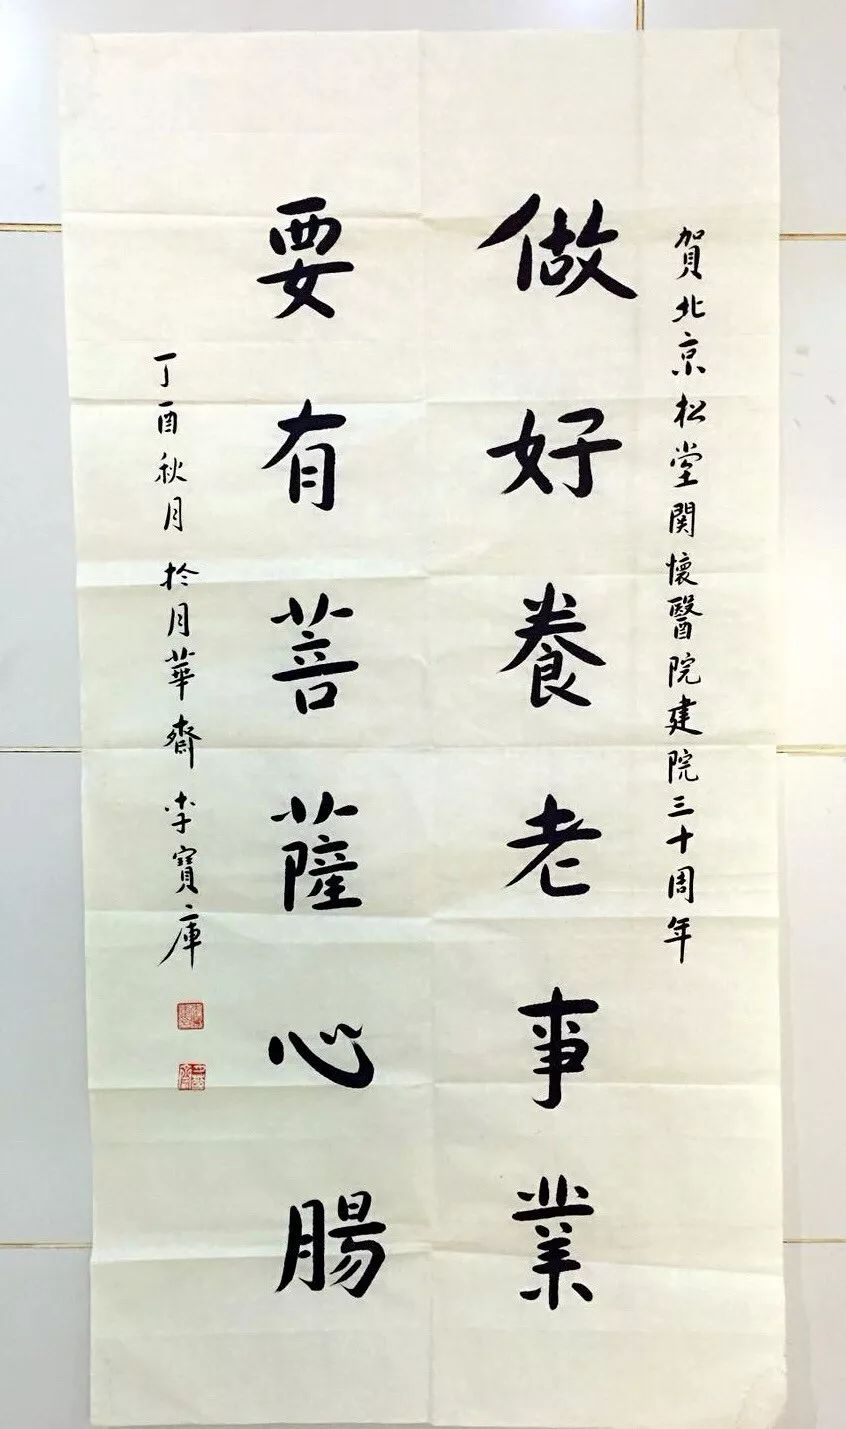 賀北京松堂関懷醫院建院三十周年
做好養老事業
要有菩薩心腸
丁酉秋月於月華齋李寶庫